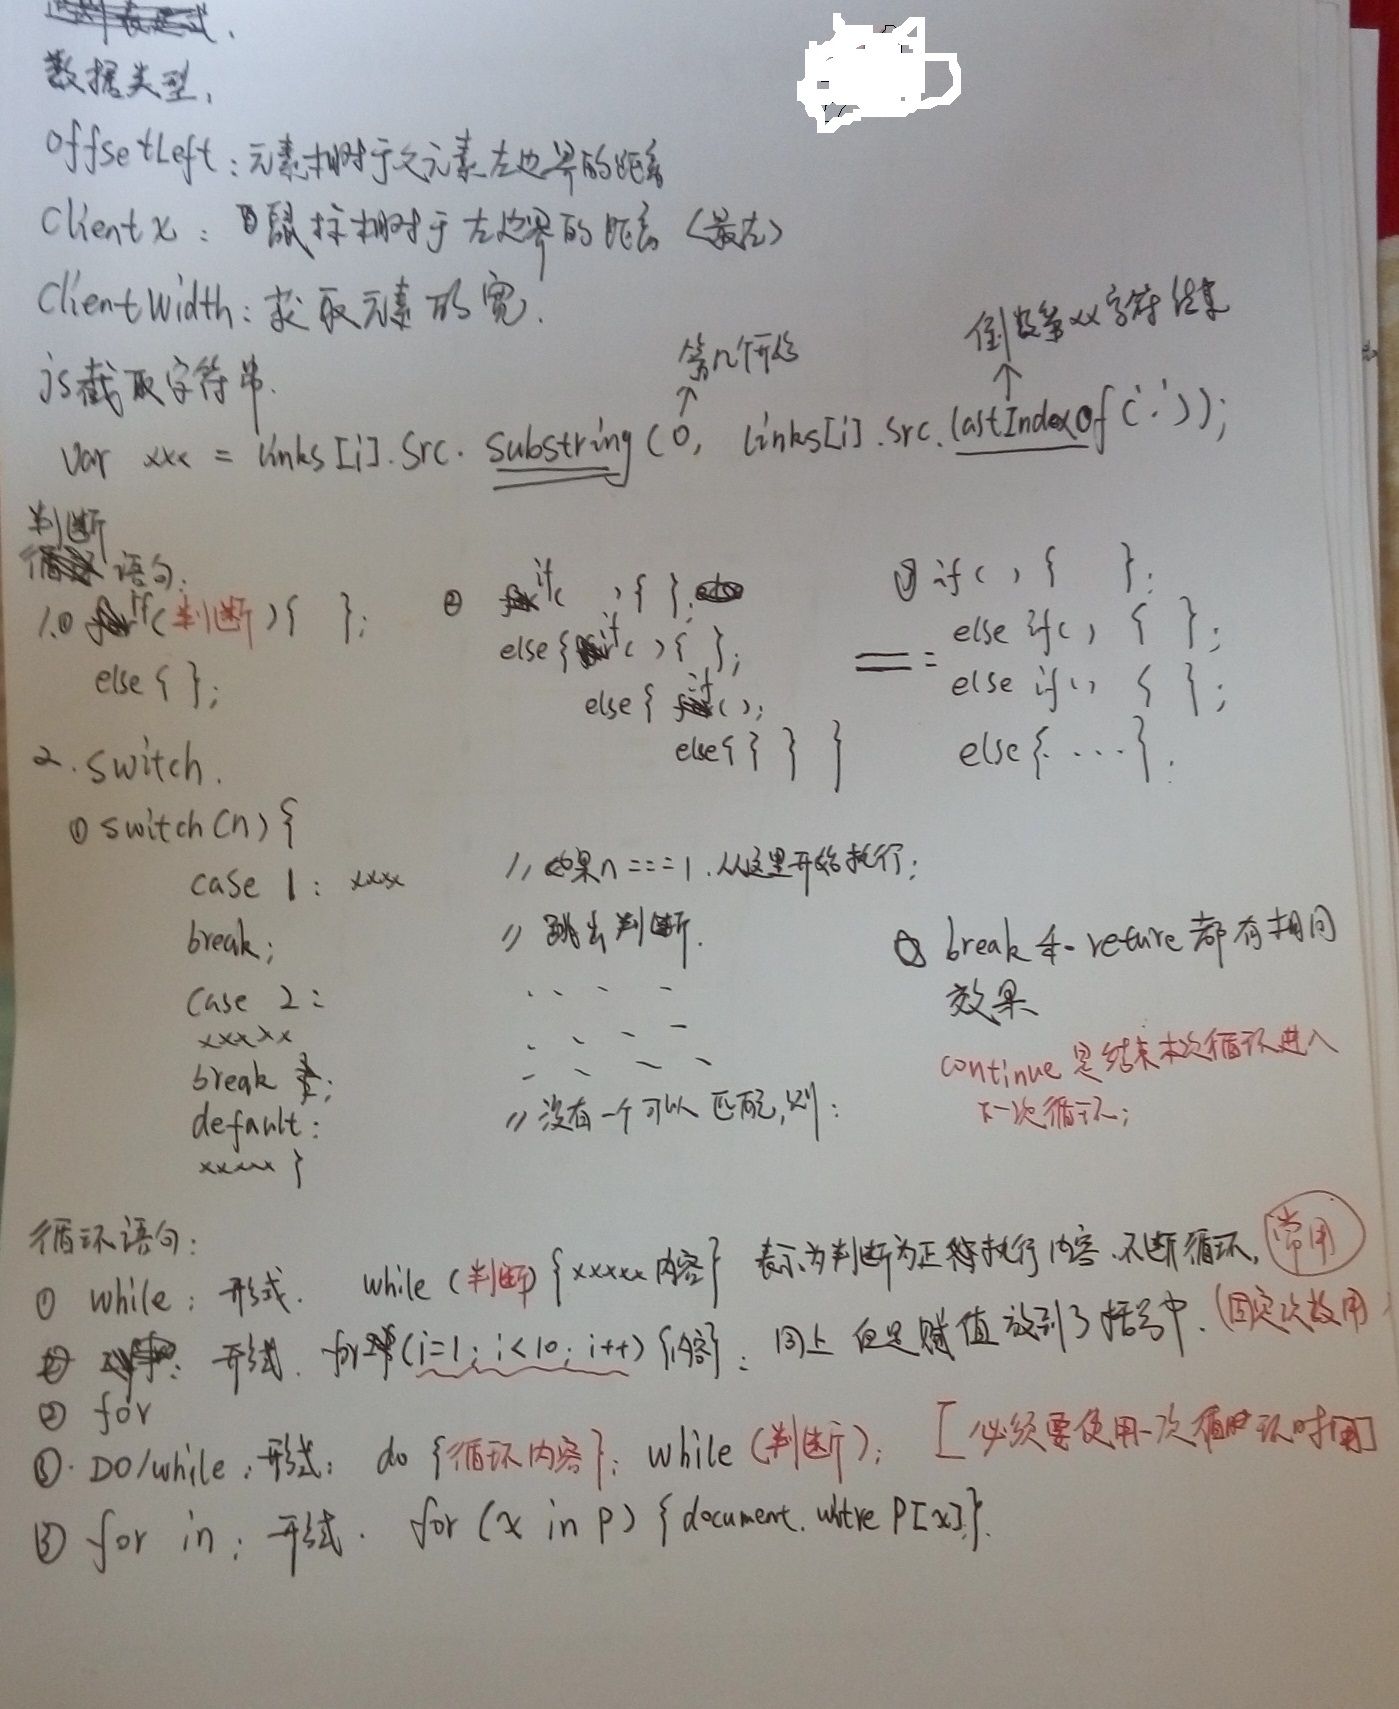 数据类型,
offsetLeft:元素相对于父元素左边界的距离
Client x:鼠标相对于左边界的距离(最左)
ClientWidth:求取元素的宽.
第几个开始
倒数第xx字符结束
js截取字符串.
var xxx = links[i].src.substring(0, links[i].src.lastIndexOf('.'));
判断
语句:
1.① if(判断){ };
else{ };
② if( ){ };
else{if( ){ };
else{ if( );
else{ } } }
== =
③ if( ){ };
else if( ) { };
else if( ) { };
else{....}.
2.switch.
① switch(n){
case 1: xxxx //如果n===1.从这里开始执行;
break; //跳出判断.
case 2:
xxxxx
break ;
default: //没有一个可以匹配,则:
xxxxx }
break和 reture都有相同
效果
continue是结束本次循环进入
下一次循环;
循环语句:
① while:形式. while(判断){xxxxx内容} 表示为判断为正确执行内容.不断循环. 常用
形式. for(i=1;i<10;i++){内容}: 同上 但是赋值放到了括号中.(固定次数用)
② for
③. DO/while:形式: do {循环内容}; while(判断); [必须要使用一次循环时用]
③ for in:形式. for(x in p){document.wtire P[x]}.